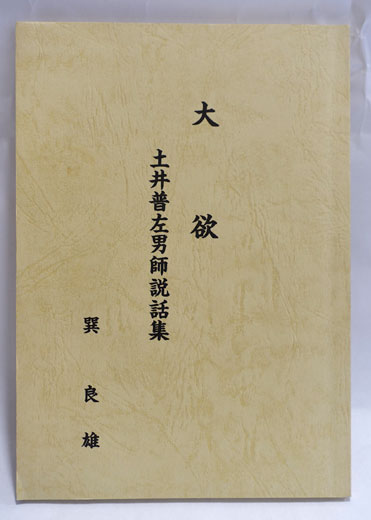 大欲
土井普左男師説話集
巽良雄